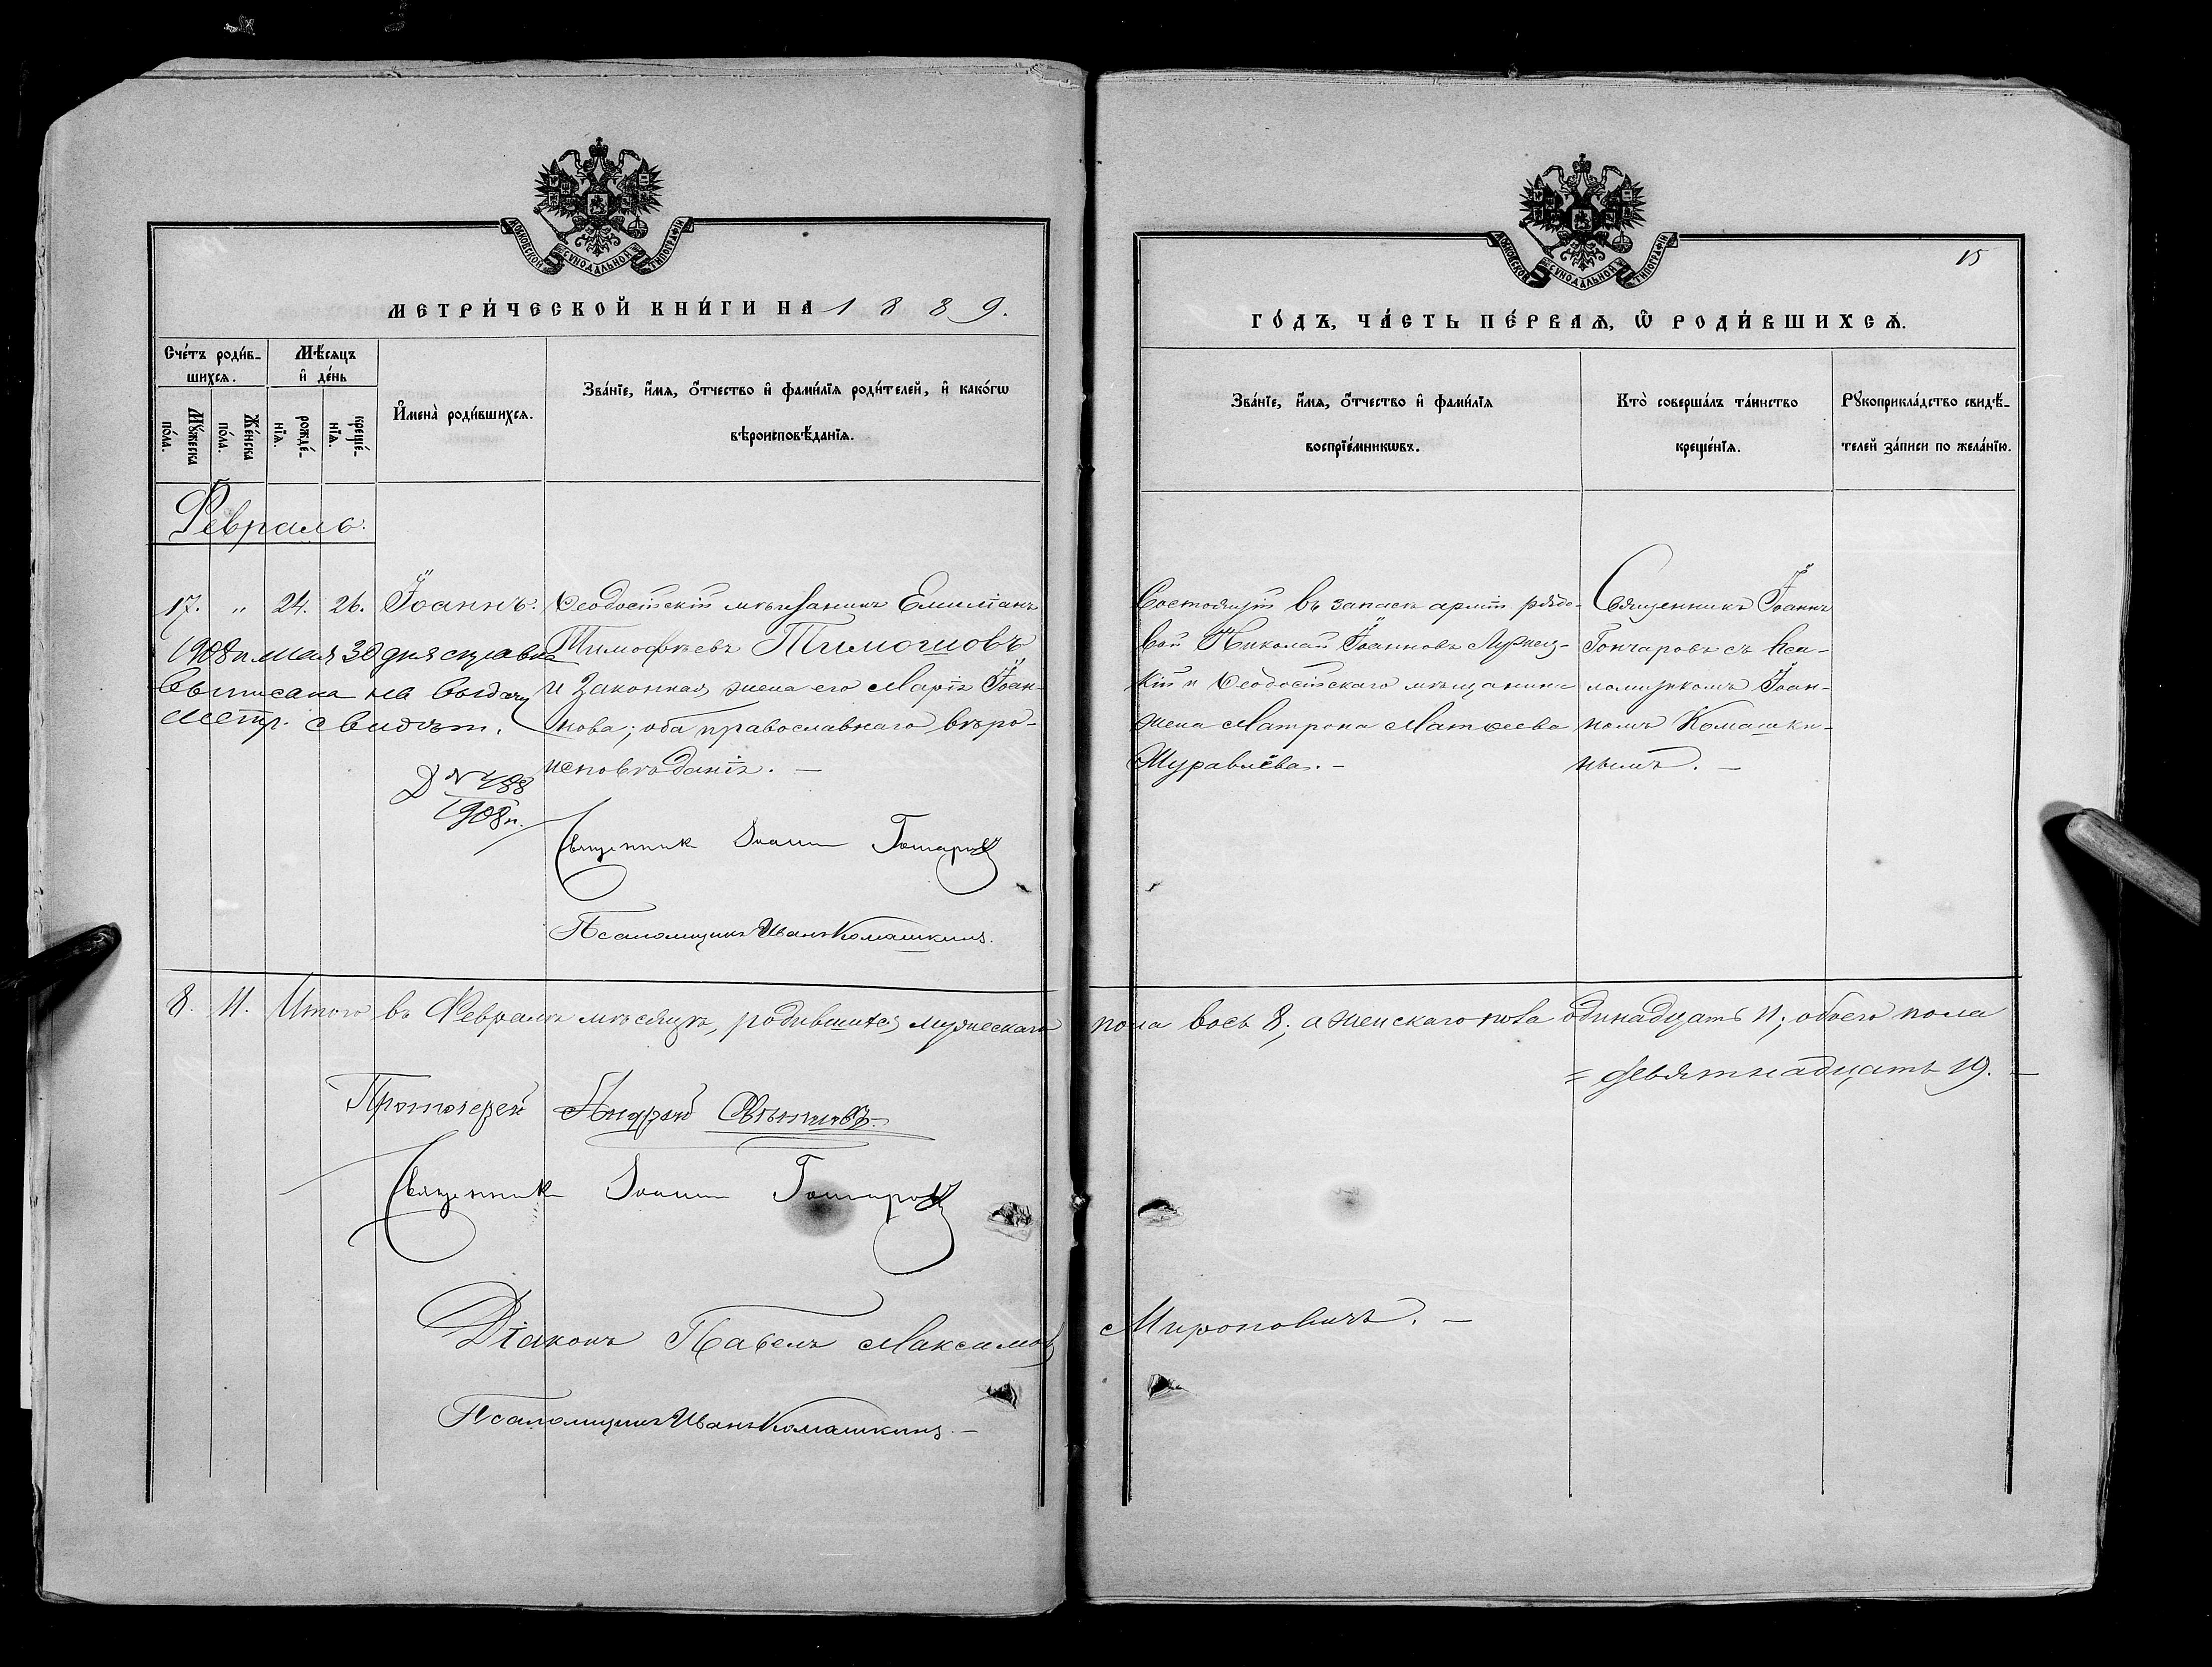 МОСКОВСКОЙ СѴНОДАЛЬНОЙ ТИПОГРАФІИ
МЕТРИ́ЧЕСКОЙ КНИ́ГИ НА 1889.
Сче́тъ роди́в-
шихсѧ.
Мѣ́сѧцъ
и҆ де́нь
Мꙋ́жеска
по́ла.
Же́нска
по́ла.
рожде́-
нїѧ.
креще́-
нїѧ.
И҆мена̀ роди́вшихсѧ.
Зва́нїе, и҆́мѧ, ѻ҆́тчество и҆ фами́лїѧ роди́телей, и҆ како́гѡ
вѣроисповѣ́данїѧ.
Февраль.
17. " 24. 26. Іоаннъ.
Ѳеодосійскій мѣщанинъ Емиліанъ
Тимофѣевъ Тимошовъ
и законная жена его Марія Іоан-
нова; оба православнаго вѣро-
исповѣданія. —
1908 г. мая 30 дня справка
выписана на выдачу
метр. свидѣт.
Д № 488
1908 г.
Священник Іоанн Гончаровъ
Псаломщикъ Иванъ Комашкинъ.
8. 11. Итого въ Февралѣ мѣсяцѣ, родившихся мужескаго
Протоіерей Андрей
Священник Іоанн Гончаровъ
Діаконъ Павелъ Максимов
Псаломщикъ Иванъ Комашкинъ. —
МОСКОВСКОЙ СѴНОДАЛЬНОЙ ТИПОГРАФІИ
15
ГО́ДЪ, ЧА́СТЬ ПЕ́РВАѦ, Ѡ҆ РОДИ́ВШИХСѦ.
Зва́нїе, и҆́мѧ, ѻ҆́тчество и҆ фами́лїѧ
воспрїе́мникѡвъ.
Кто̀ соверша́лъ та́инство
креще́нїѧ.
Рꙋкоприкла́дство свидѣ́-
телей за́писи по жела́нїю.
Состоящій въ запасѣ арміи рядо-
вой Николай Іоанновъ
и Ѳеодосійскаго мѣщанина
жена Матрона Матѳеева
Журавлёва. —
Священникъ Іоаннъ
Гончаровъ съ Пса-
ломщикомъ Іоан-
номъ Комашки-
нымъ. —
пола вось 8; а женскаго пола одинадцать 11; обоего пола
= девятнадцать 19. —
Мироновичъ. —